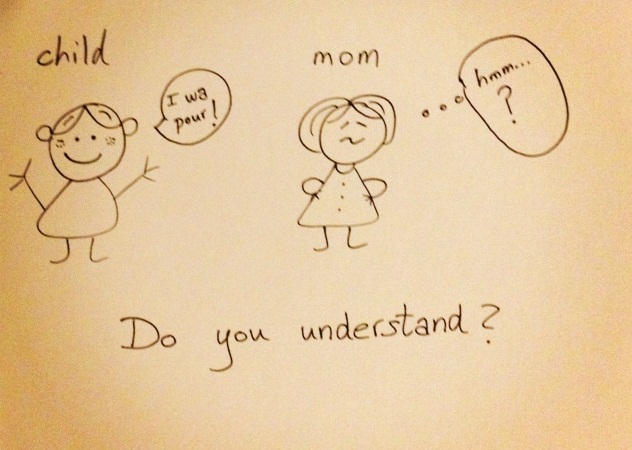 child
mom
I wa
pour!
hmm...
?
Do you understand?